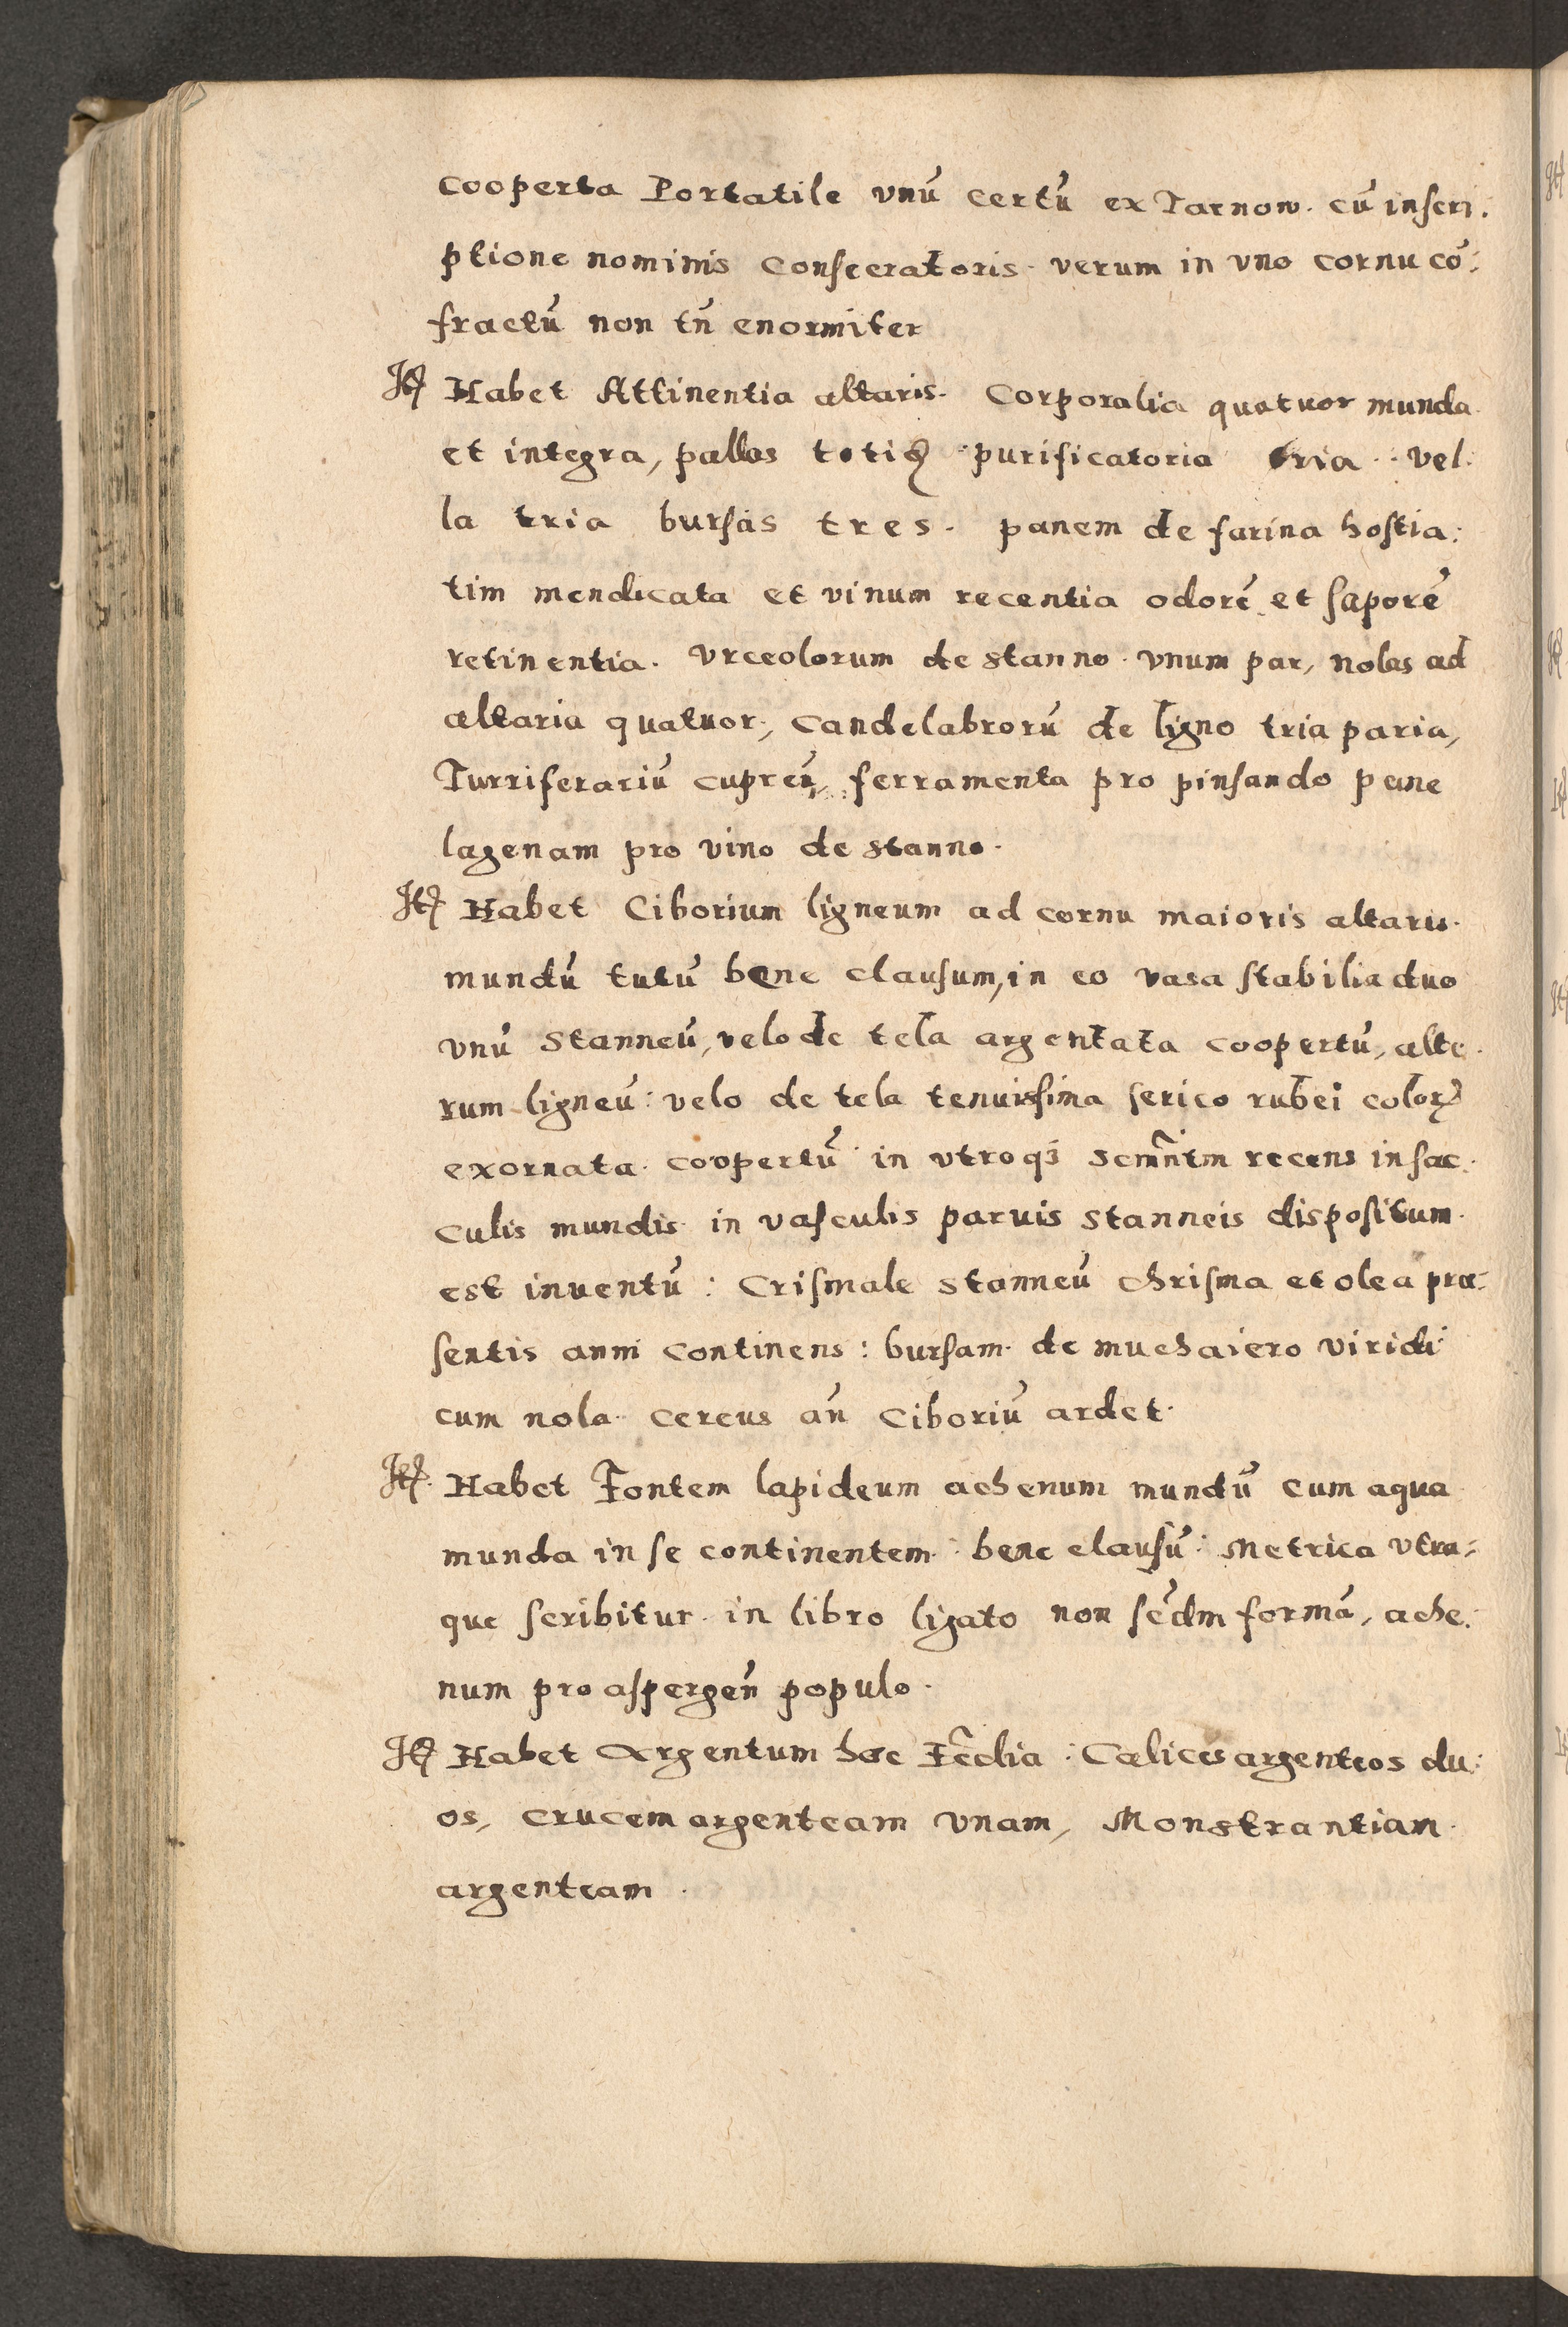 cooperta Portatile vnũ certũ ex Tarnow. cũ inscri.
ptione nominis Consecratoris. verum in vno cornu cõ:
fractũ non tñ enormiter
Itẽ Habet Attinentia altaris. Corporalia quatuor munda
et integra, pallas totiq̃ purificatoria tria. vel:
la tria bursas tres. panem de farina hostia:
tim mendicata et vinum recentia odorẽ et saporẽ
retinentia. vrceolorum de stanno. vnum par, nolas ad
altaria quatuor, Candelabrorũ de ligno tria paria,
Turriferariũ cupreũ, ferramenta pro pinsando pane
lagenam pro vino de stanno.
Itẽ Habet Ciborium ligneum ad cornu maioris altaris.
mundũ tutũ bene clausum, in eo vasa stabilia duo
vnũ stanneũ, velo de tela argentata coopertũ, alte.
rum ligneũ: velo de tela tenuissima serico rubei colorꝭ
exornata. coopertũ in vtroqꝫ Scm̃ntm recens in sac.
culis mundis in vasculis paruis stanneis dispositum.
est inuentũ: Crismale stanneũ Chrisma et olea præ:
sentis anni continens: bursam. de muchaiero viridi
cum nola. Cereus añ Ciboriũ ardet.
Itẽ. Habet Fontem lapideum achenum mundũ cum aqua
munda in se continentem. bene clausũ. Metrica vtra:
que scribitur. in libro ligato non sec̃dm formã, ache:
num pro aspergeñ populo.
Itẽ Habet Argentum hæc Ecc̃lia: Calices argenteos du:
os, crucem argenteam vnam, Monstrantiam
argenteam.